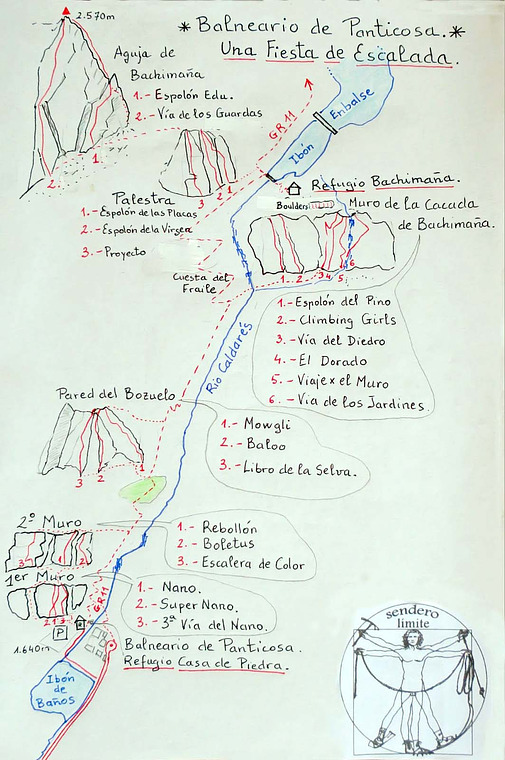 * Balneario de Panticosa. *
Una Fiesta de Escalada.
2.570m
Aguja de
Bachimaña
1.- Espolón Edu.
2.- Vía de los Guardas
1
2
GR11
Embalse
Ibón
3 2 1
Refugio Bachimaña.
Palestra
1.- Espolón de las Placas
2.- Espolón de la Virgen
3.- Proyecto
Boulders
Muro de la Cascada
de Bachimaña.
1 - 2 - 3 4 5 6
Cuesta del
Fraile
1.- Espolón del Pino
2.- Climbing Girls
3.- Vía del Diedro
4.- El Dorado
5.- Viaje x el Muro
6.- Vía de los Jardines.
Río Caldarés
Pared del Bozuelo
3 2 1
1.- Mowgli
2.- Baloo
3.- Libro de la Selva.
2º Muro
3 1 2
1.- Rebollón
2.- Boletus
3.- Escalera de Color
1er Muro
2 1 3
GR11
1.- Nano.
2.- Super Nano.
3.- 3ª Vía del Nano.
P
1.640m
Balneario de Panticosa.
Refugio Casa de Piedra.
Ibón
de
Baños
sendero
limite